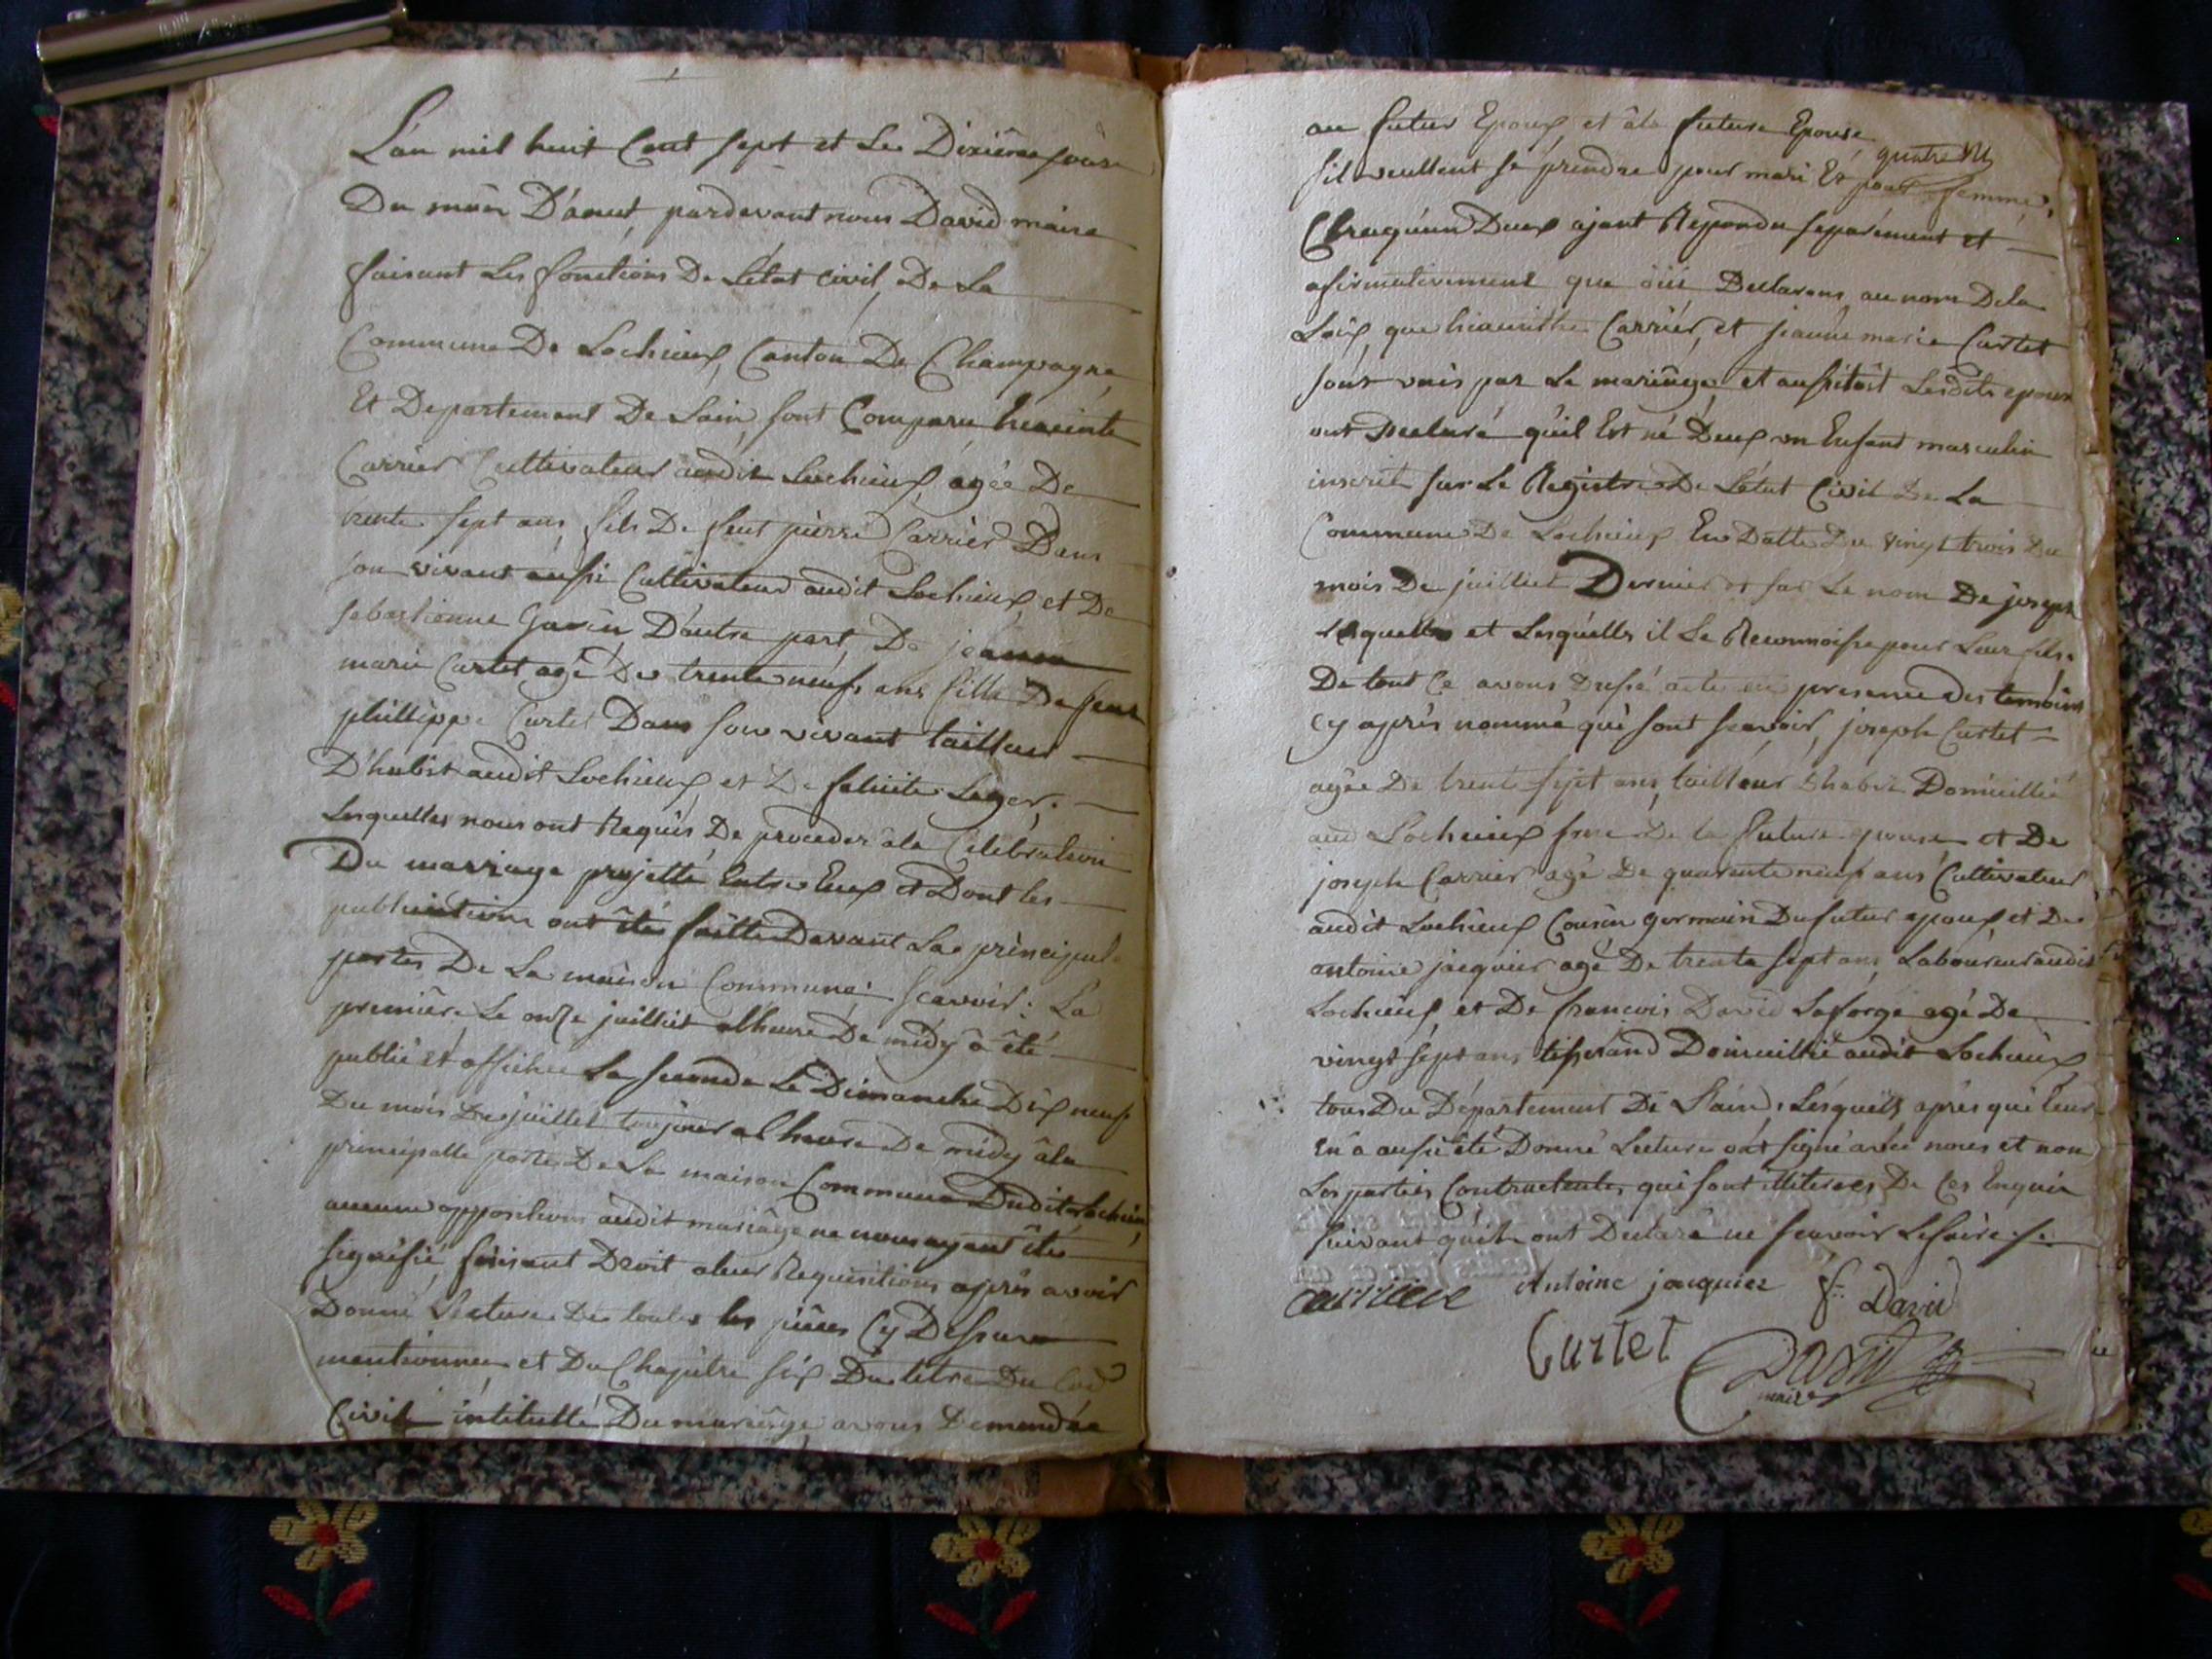 L'an mil huit Cent sept et Le Dixiême jour
Du mois D'aout, pardevant nous David maire
faisant Les fonctions De L'état civil, De La
Commune De Lochieux, Canton De Champagne
Et Departement De Lain, sont Comparu hiacinte
Carrier Cultivateur audit Lochieux agée De
trente sept ans, fils De feut pierre Carrier Dans
son vivant aussi Cultivateur audit Lochieux et De
sebastienne Gavin D'autre part, De jeanne
marie Curtet agé De trente neuf ans fille De feut
phillippe Curtet Dans son vivant tailleur
D'habit audit Lochieux et De felicite Leger.
Lesquelles nous ont Requis De proceder âla Célébration
Du marriage projetté Entre Eux et Dont les
publications ont êté faitte Devant La principale
portes De La maison Commune, scavoir: La
première Le onze juilliet alheure De midy â êté
publié et affichée La seconde Le Dimanche Dix neuf
Du mois De juillet toujour alheure De midy âla
principalle porte De La maison Commune Dudit Lochieux,
aucune opposition audit mariâge ne nous ayant êté
signifié, faisant Droit aleur Requisitions après avoir
Donné Lecture De toutes les pièces Cy Dessus
mentionnée et Du Chapitre six Du titre Du Code
Civil intitullé Du mariâge avons Demandée
au futur Epoux et âla future Epouse
quatre
sil veullent se prendre pour mari Et pour femme,
Chaqu'un Deux ajant Repondu separément et
afirmativement que oüi Declarons au nom Dela
Loix, que hiacinthe Carrier, et jeanne marie Curtet
sont unis par Le mariâge, et aussitôt Lesdits epoux
ont Declaré qu'il Est né Deux un Enfant masculin
inscrit sur Le Registre De L'état Civil De La
Commune De Lochieux En Datte Du vingt trois Du
mois De juilliet Dernier et sur Le nom De joseph
Lequell et Lesquells il Le Reconnoisse pour Leur fils.
De tout Ce avons Dressé acte en presence des temoins
Cy après nommé qui sont scavoir, joseph Curtet
agée De trent sept ans, tailleur Dhabit Domicillié
aud Lochieux frere De la future epouse et De
joseph Carrier agé De quarante neuf ans Cultivateur
audit Lochieux Cousin germain Du futur epoux et De
antoine jacquier agé De trente sept ans Laboureur audit
Lochieux et De francois David Laforge agé De
vingt sept ans tisserand Domicillié audit Lochieux
tous Du Département De L'ain, Lesquells après qui Leur
En a aussi êté Donné Lecture ont signé avec nous et non
Les parties Contractantes, qui sont illiterees De Ces Enquis
suivant qu'ils ont Declaré ne scavoir Le faire.
Antoine jacquier fr. David
Curtet David
maire